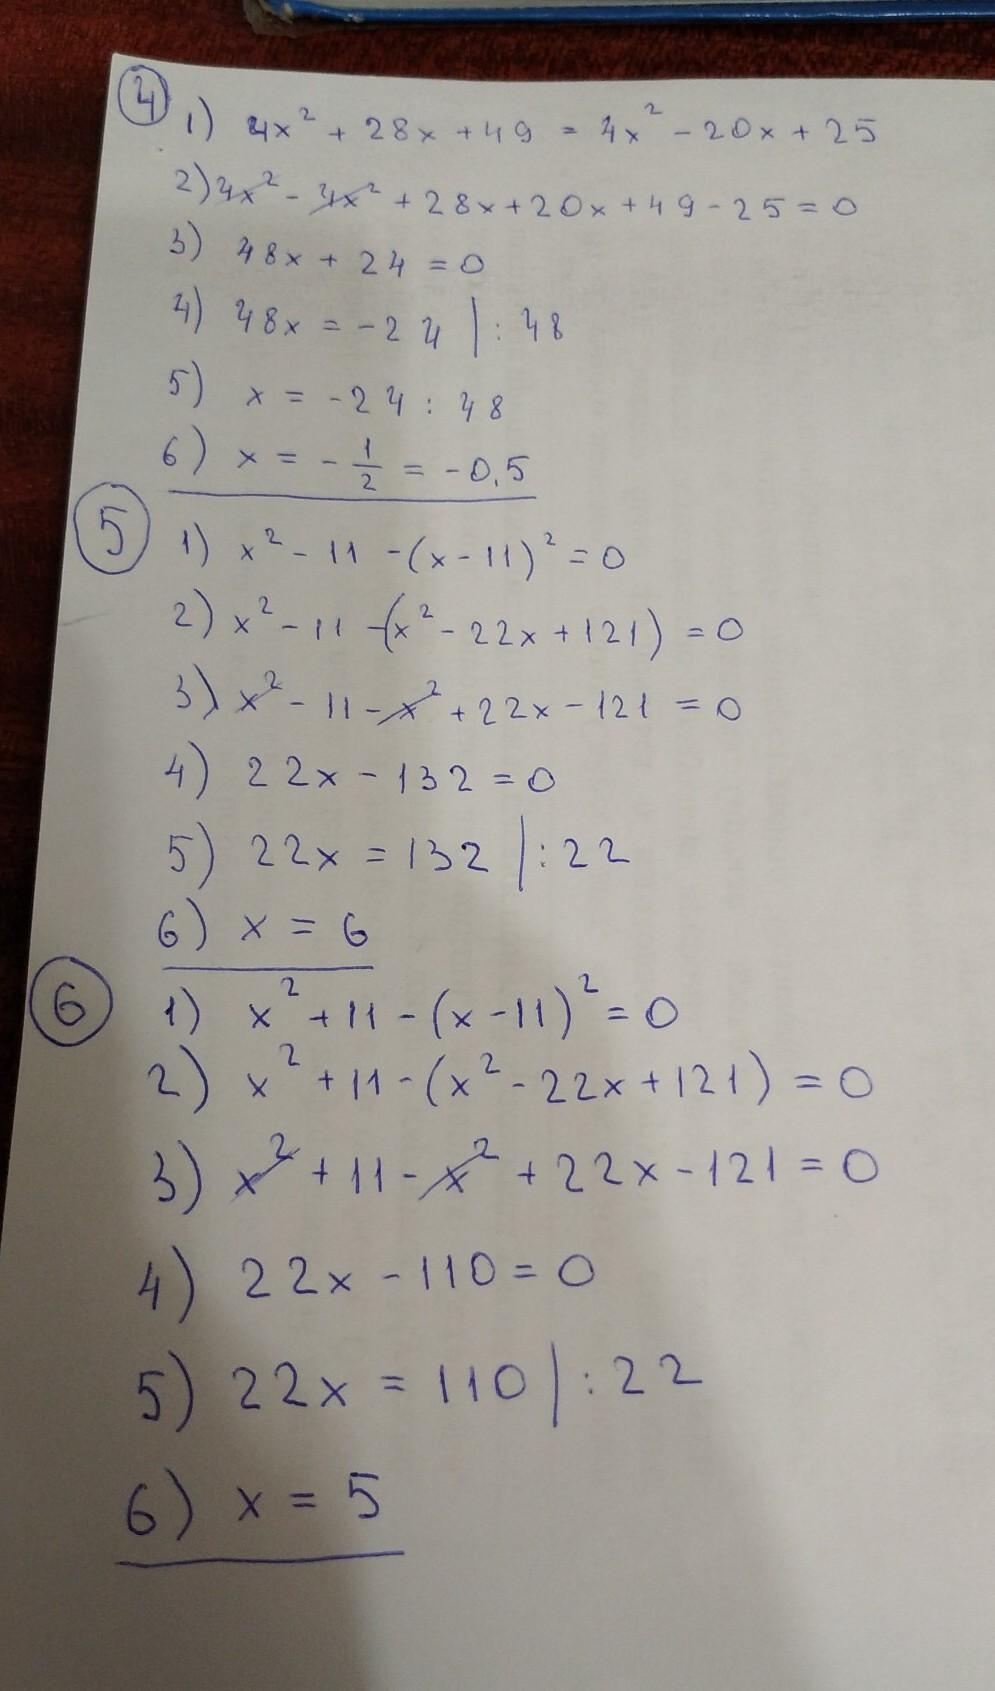 4
1) 4x² + 28x + 49 = 4x² - 20x + 25
2) 4x² - 4x² + 28x + 20x + 49 - 25 = 0
3) 48x + 24 = 0
4) 48x = -24 | : 48
5) x = -24 : 48
6) x = - 1/2 = -0,5
5
1) x² - 11 - (x - 11)² = 0
2) x² - 11 - (x² - 22x + 121) = 0
3) x² - 11 - x² + 22x - 121 = 0
4) 22x - 132 = 0
5) 22x = 132 | : 22
6) x = 6
6
1) x² + 11 - (x - 11)² = 0
2) x² + 11 - (x² - 22x + 121) = 0
3) x² + 11 - x² + 22x - 121 = 0
4) 22x - 110 = 0
5) 22x = 110 | : 22
6) x = 5